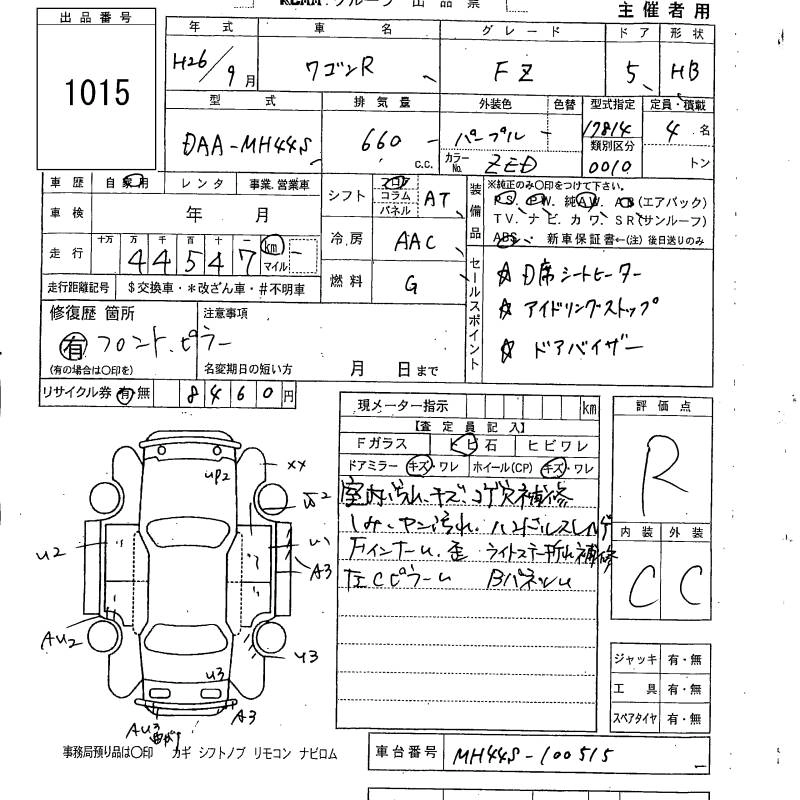 グループ 出品票
主催者用
出品番号
1015
年式 車名 グレード ドア 形状
H26/9月 ワゴンR FZ 5 HB
型式 排気量 外装色 色替 型式指定 定員・積載
DAA-MH44S 660 c.c. パープル 17814 4 名
カラーNo. ZED 類別区分 0010 トン
車歴 自家用 レンタ 事業.営業車
車検 年 月
走行 十万 万 千 百 十 一 km マイル
44547
走行距離記号 $交換車・*改ざん車・#不明車
シフト フロア コラム パネル AT
冷房 AAC
燃料 G
装備品 ※純正のみ○印をつけて下さい。
PS. PW. 純AW. AB(エアバック)
TV. ナビ. カワ. SR(サンルーフ)
ABS 新車保証書←(注) 後日送りのみ
セールスポイント
☆ D席シートヒーター
☆ アイドリングストップ
☆ ドアバイザー
修復歴 箇所 注意事項
有 フロント.ピラー
(有の場合は○印を) 名変期日の短い方 月 日まで
リサイクル券 有・無 8460円
現メーター指示 km
【査定員記入】
Fガラス ヒビ石 ヒビワレ
ドアミラー キズ・ワレ ホイール(CP) キズ・ワレ
室内汚れ.キズ コゲ穴補修
シみ.ヤニ汚れ. ハンドルスレ
FインナーU.歪 ライトステー折れ補修
左CピラーU BパネルU
評価点
R
内装 外装
C C
ジャッキ 有・無
工具 有・無
スペアタイヤ 有・無
UP2
XX
W2
U2
U1
A3
AU2
U3
U3
AU3
曲がり
A3
事務局預り品は○印 カギ シフトノブ リモコン ナビロム
車台番号 MH44S-100515